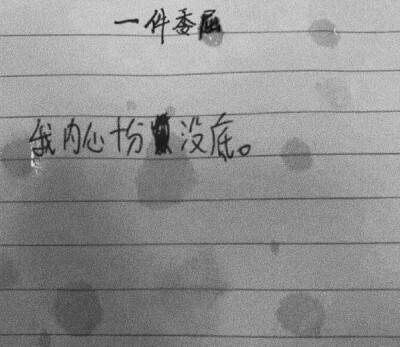 一件委屈
我内心十份没底。